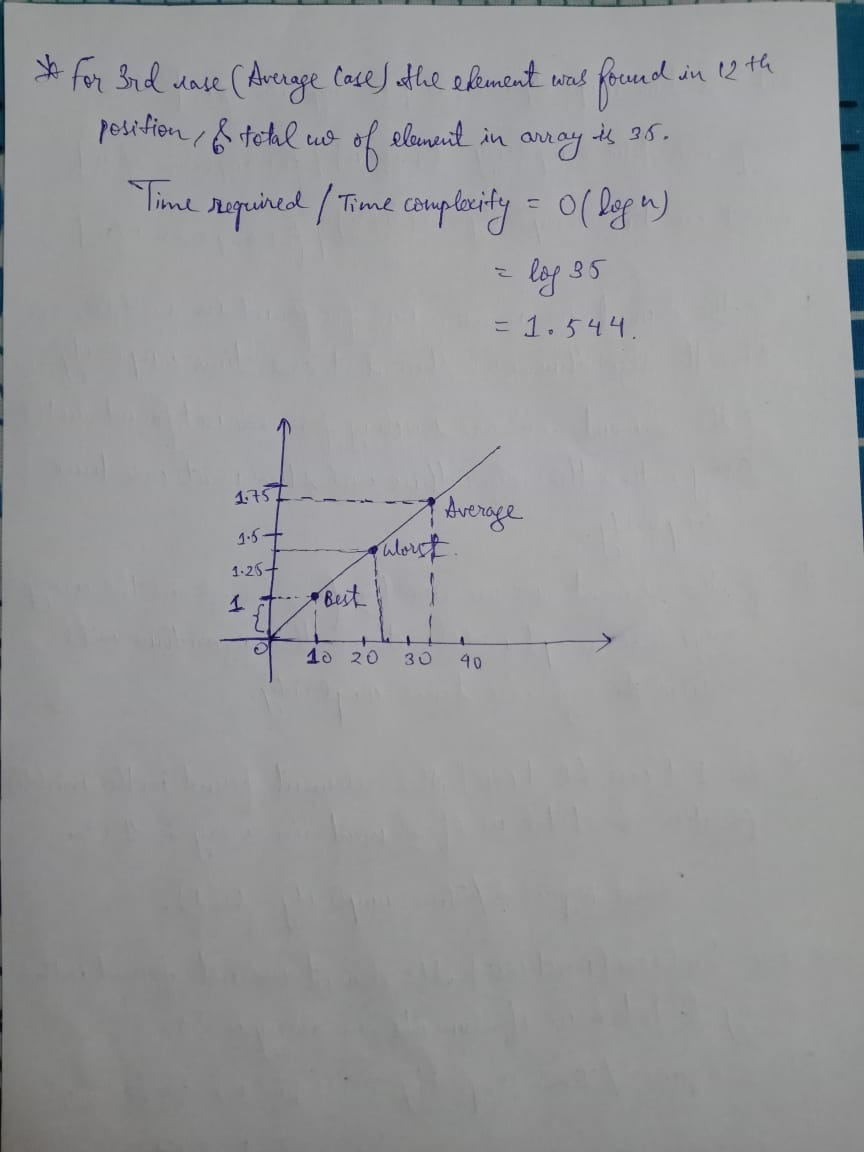 * For 3rd case (Average Case) the element was found in 12 th
position, & total no of element in array is 35.
Time required / Time complexity = O(log n)
= log 35
= 1.544.
1.75
Average
1.5
Worst.
1.25
1
Best
0
10 20 30 40